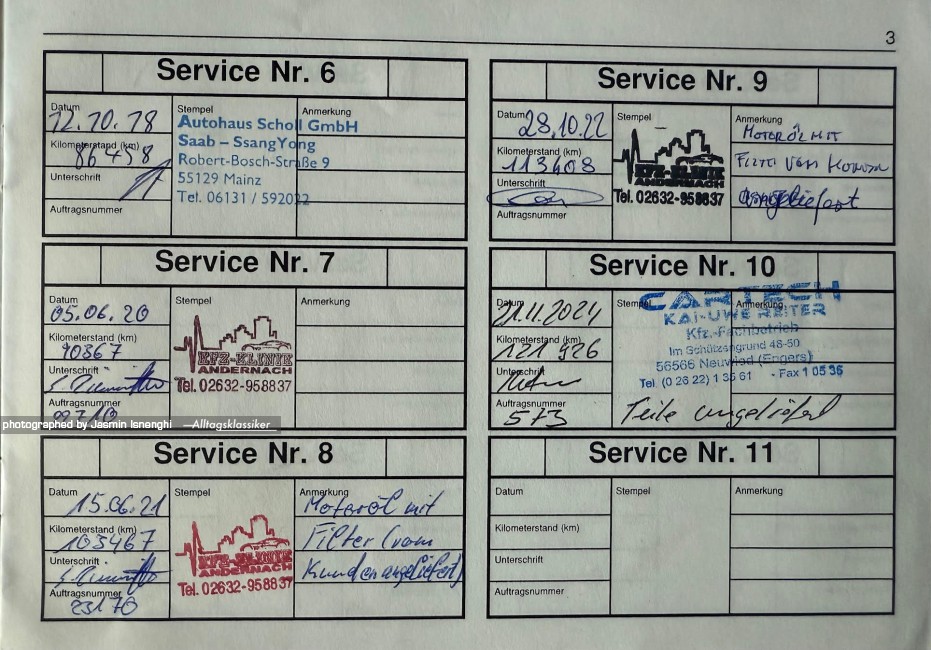 3
Service Nr. 6
Datum
12.10.18
Kilometerstand (km)
86458
Unterschrift
Auftragsnummer
Stempel
Autohaus Scholl GmbH
Saab – SsangYong
Robert-Bosch-Straße 9
55129 Mainz
Tel. 06131 / 592022
Anmerkung
Service Nr. 7
Datum
05.06.20
Kilometerstand (km)
90867
Unterschrift
Auftragsnummer
Stempel
KFZ-KLINIK
ANDERNACH
Tel. 02632-958837
Anmerkung
Service Nr. 8
Datum
15.06.21
Kilometerstand (km)
103467
Unterschrift
Auftragsnummer
23170
Stempel
KFZ-KLINIK
ANDERNACH
Tel. 02632-958837
Anmerkung
Motoröl mit
Filter (vom
Kunden angeliefert)
Service Nr. 9
Datum
28.10.22
Kilometerstand (km)
113608
Unterschrift
Auftragsnummer
Stempel
KFZ-KLINIK
ANDERNACH
Tel. 02632-958837
Anmerkung
Motoröl mit
Filter von Kunden
angeliefert
Service Nr. 10
Datum
21.11.2024
Kilometerstand (km)
121 926
Unterschrift
Auftragsnummer
573
Stempel
Anmerkung
CARTECH
KAI-UWE REITER
Kfz.-Fachbetrieb
Im Schützengrund 48-50
56566 Neuwied (Engers)
Tel. (0 26 22) 1 35 61 - Fax 1 05 36
Teile angeliefert
Service Nr. 11
Datum
Kilometerstand (km)
Unterschrift
Auftragsnummer
Stempel
Anmerkung
photographed by Jasmin Isnenghi —Alltagsklassiker